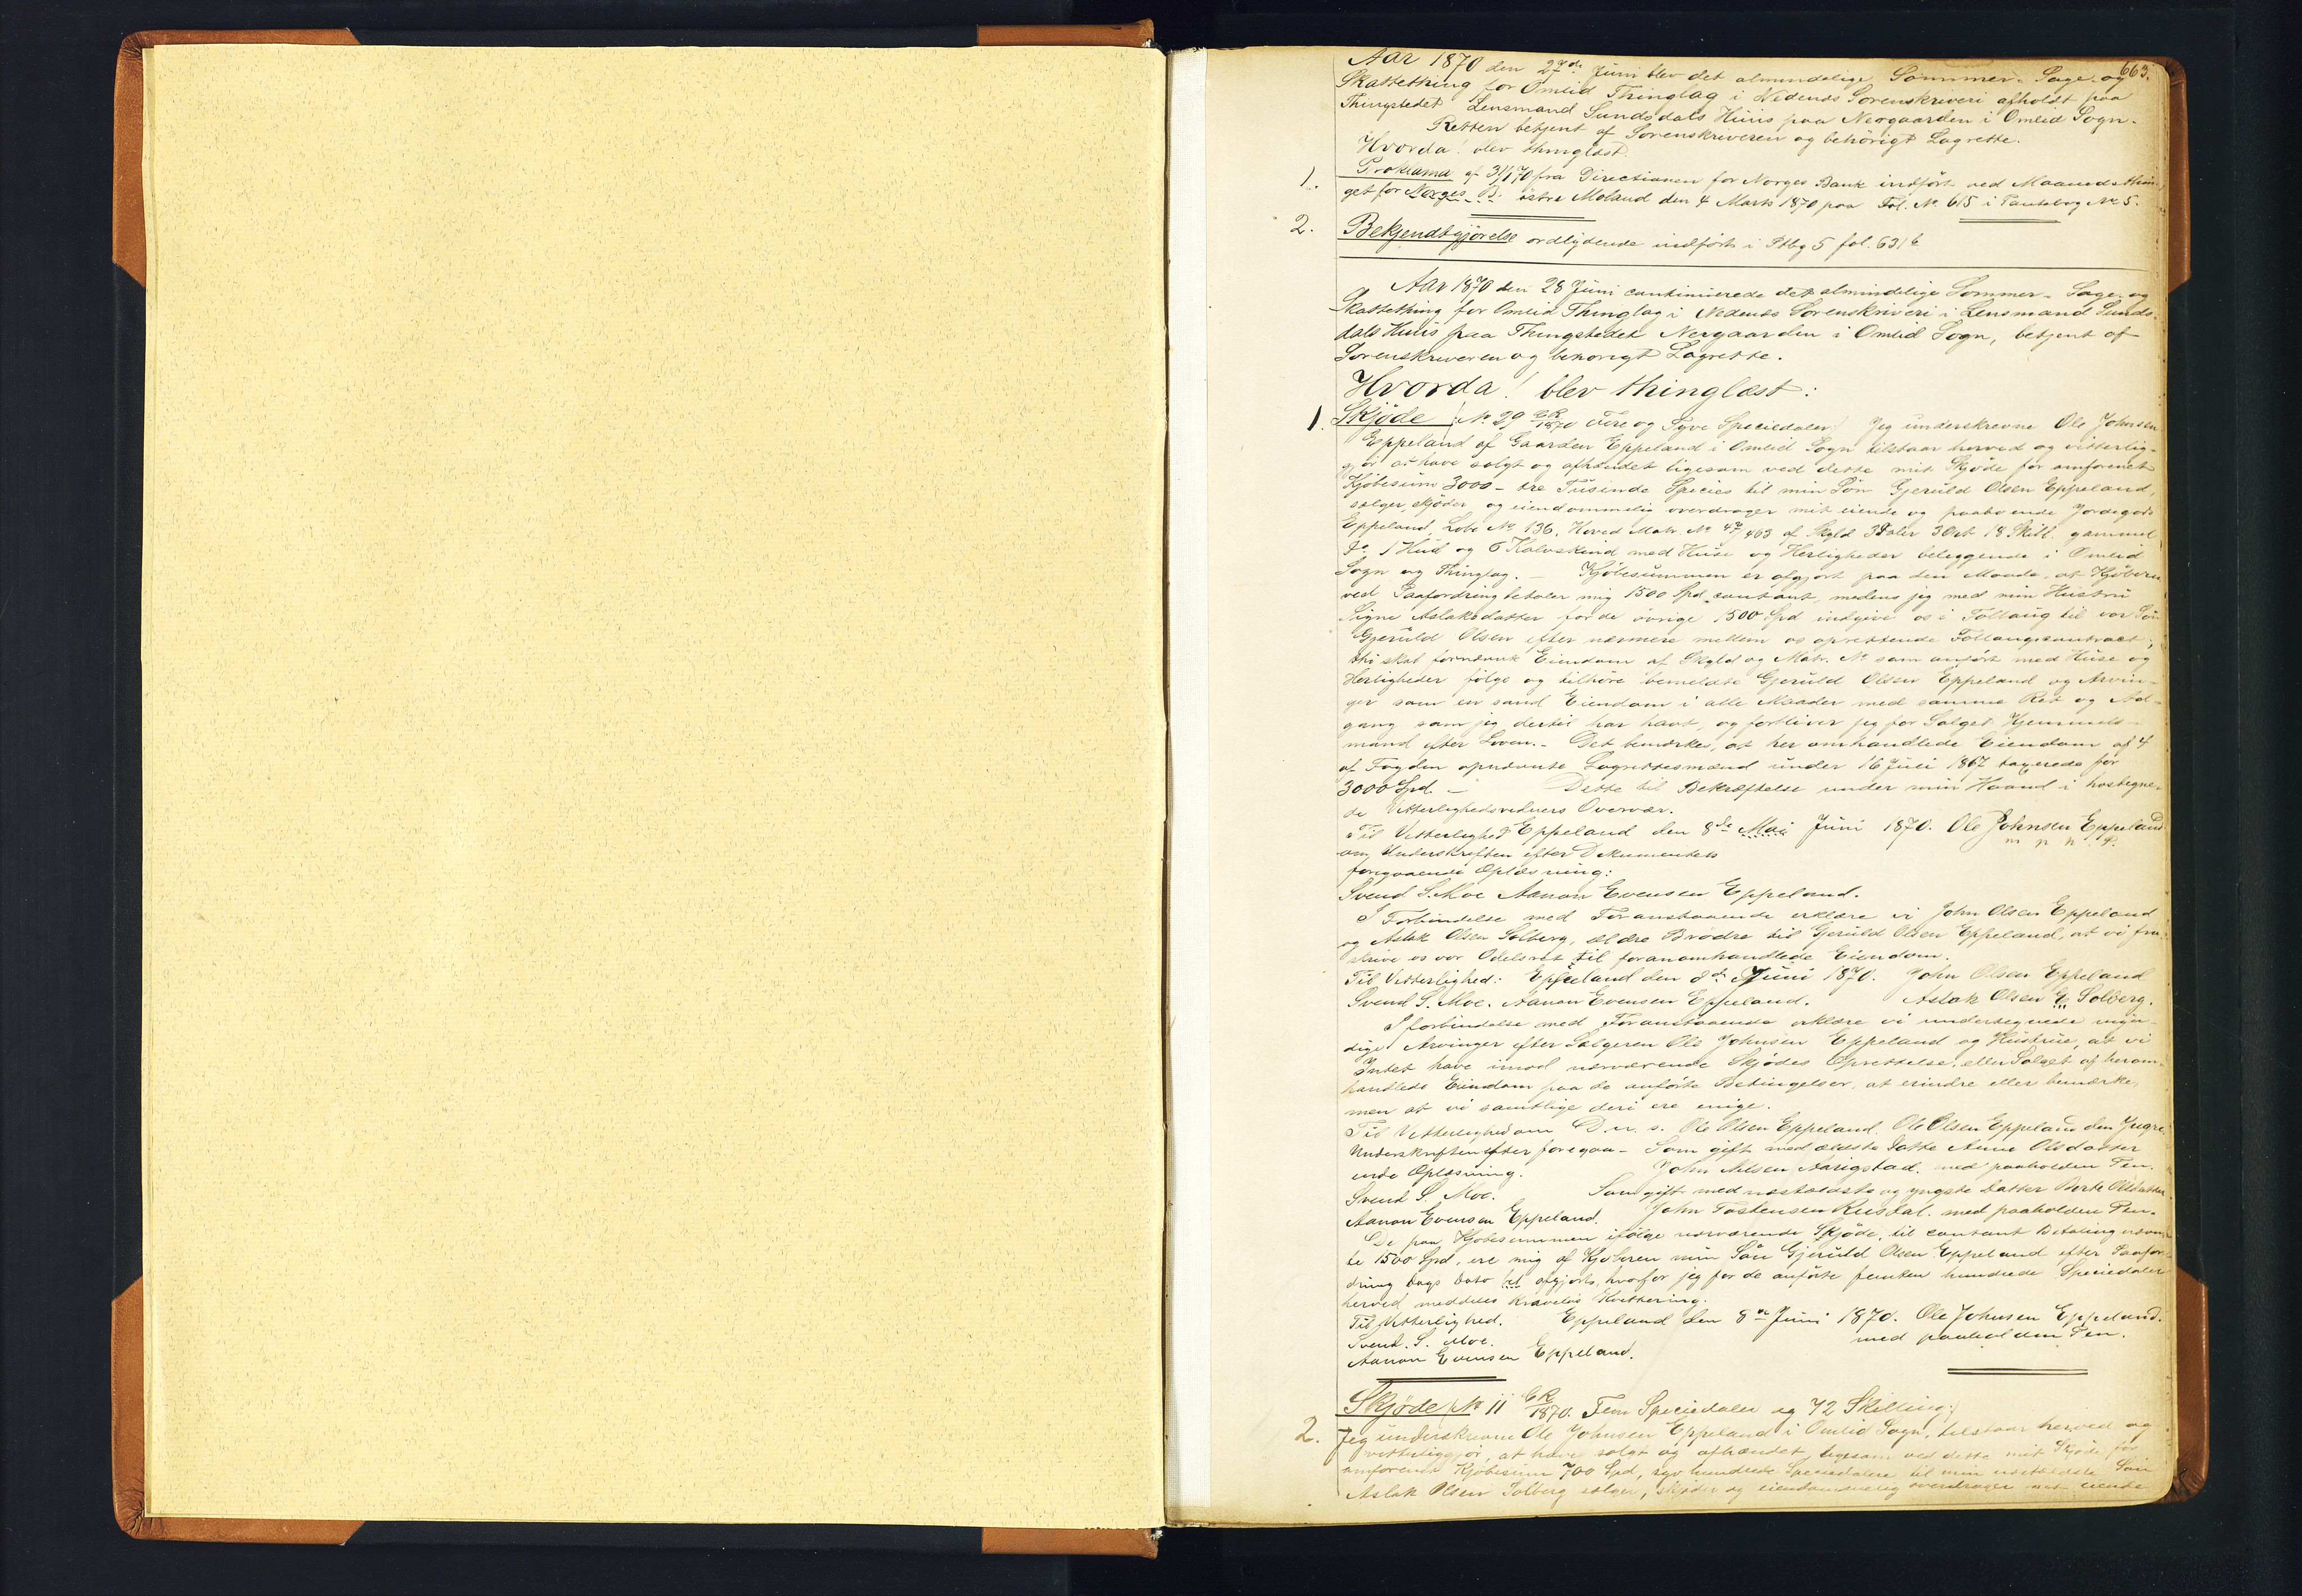 663.
Aar 1870 den 27de Juni blev det almindelige Sommer- Sage- og
Skattething for Omlid Thinglag i Nedenes Sorenskriveri afholdt paa
Thingstedet Lensmand Sundsdals Huus paa Nergaarden i Omlid Sogn.
Retten betjent af Sorenskriveren og behörigt Lagrette.
Hvorda! blev thinglæst.
1. Proklama af 31/1 70 fra Directionen for Norges Bank indfört ved Maanedsthin
get for Norges B. östre Moland den 4 Marts 1870 paa Fol. No. 615 i Pantebog No 5.
2. Bekjendtgjörelse ordlydende indfört i Ptbg 5 fol. 631 b
Aar 1870 den 28 Juni continuerede det almindelige Sommer- Sage- og
Skattething for Omlid Thinglag i Nedenes Sorenskriveri i Lensmand Sunds-
dals Huus paa Thingstedet Nergaarden i Omlid Sogn, betjent af
Sorenskriveren og behörigt Lagrette.
Hvorda! blev thinglæst:
1. Skjöde (No 29 CR/1870 Fire og Tyve Speciedaler) Jeg underskrevne Ole Johnsen
Eppeland af Gaarden Eppeland i Omlid Sogn tilstaar herved og vitterlig-
gjör at have solgt og afhændet ligesom ved dette mit Skjöde for omforenet
Kjöbesum 3000 - tre Tusinde Species til min Sön Gjeruld Olsen Eppeland,
sælger, skjöder og eiendommelig overdrager mit eiende og paaboende Jordegods
Eppeland, Lobe No 136, Hoved Matr. No 47/463 af Skyld 3 Daler 3 Ort 18 Skill. gammel
Do 1 Hud og 6 Kalvskind med Huse og Herligheder beliggende i Omlid
Sogn og Thinglag. - Kjöbesummen er afgjort paa den Maade, at Kjöberen
ved Paafordring betaler mig 1500 Spd. contant, medens jeg med min Hustru
Signe Aslaksdatter for de övrige 1500 Spd indgive os i Follaug til vor Sön
Gjeruld Olsen efter nærmere mellem os oprettende Follaugscontract;
thi skal fornævnte Eiendom af Skyld og Matr. No som anfört med Huse og
Herligheder fölge og tilhöre bemeldte Gjeruld Olsen Eppeland og Arvin-
ger som en sand Eiendom i alle Maader med samme Ret og Ad-
gang som jeg dertil har havt, og forbliver jeg for Salget Hjemmels-
mand efter Loven. - Det bemærkes, at her omhandlede Eiendom af 4
af Fogden opnævnte Lagrettesmænd under 16 Juli 1867 taxerede for
3000 Spd. - Dette til Bekræftelse under min Haand i hostegne-
de Vitterlighedsvidners Overvær.
Til Vitterlighed Eppeland den 8de Mai Juni 1870. Ole Johnsen Eppeland
om Underskriften efter Dokumentets m p h P.
foregaaende Oplæsning:
Svend S. Moe Aanon Evensen Eppeland.
I Forbindelse med Foranstaaende erklære vi John Olsen Eppeland
og Aslak Olsen Solberg, ældre Brödre til Gjeruld Olsen Eppeland, at vi fra-
skrive os vor Odelsret til foranomhandlede Eiendom.
Til Vitterlighed: Eppeland den 8de Juni 1870. John Olsen Eppeland
Svend S. Moe. Aanon Evensen Eppeland. Aslak Olsen E Solberg.
I forbindelse med Foranstaaende erklære vi undertegnede myn-
dige Arvinger efter Sælgeren Ole Johnsen Eppeland og Hustrue, at vi
Intet have imod nærværende Skjödes Oprettelse, eller Salget af herom-
handlede Eiendom paa de anförte Betingelser, at erindre eller bemærke,
men at vi samtlige deri ere enige.
Til Vitterlighed om D. u. s. Ole Olsen Eppeland. Ole Olsen Eppeland den Yngre.
Underskriften efter foregaa- Som gift med ældste Datte Anne Olsdatter
ende Oplæsning. John Nilsen Aasigstad. med paaholden Pen.
Svend S. Moe. Som gift med næstældste og yngste Datter Berte Olsdatter
Aanon Evensen Eppeland. John Tostensen Rusdal. med paaholden Pen.
De paa Kjöbesummen ifölge nærværende Skjöde, til contant Betaling nævn
te 1500 Spd, ere mig af Kjöberen min Sön Gjeruld Olsen Eppeland efter Paafor-
dring Dags Dato til afgjorte, hvorfor jeg for de anförte femten hundrede Speciedaler
herved meddeles kravelös Kvittering.
Til Vitterlighed. Eppeland den 8de Juni 1870. Ole Johnsen Eppeland.
Svend. S. Moe. med paaholden Pen.
Aanon Evensen Eppeland.
2. Skjöde (No 11 CR/1870. Fem Speciedaler og 72 Skilling)
Jeg underskrevne Ole Johnsen Eppeland i Omlid Sogn, tilstaar herved og
vitterliggjör, at have solgt og afhændet ligesom ved dette mit Skjöde for
omforenet Kjöbesum 700 Spd, syv hundrede Speciedalere til min næstældste Sön
Aslak Olsen Solberg sælger, skjöder og eiendommelig overdrager mit eiende